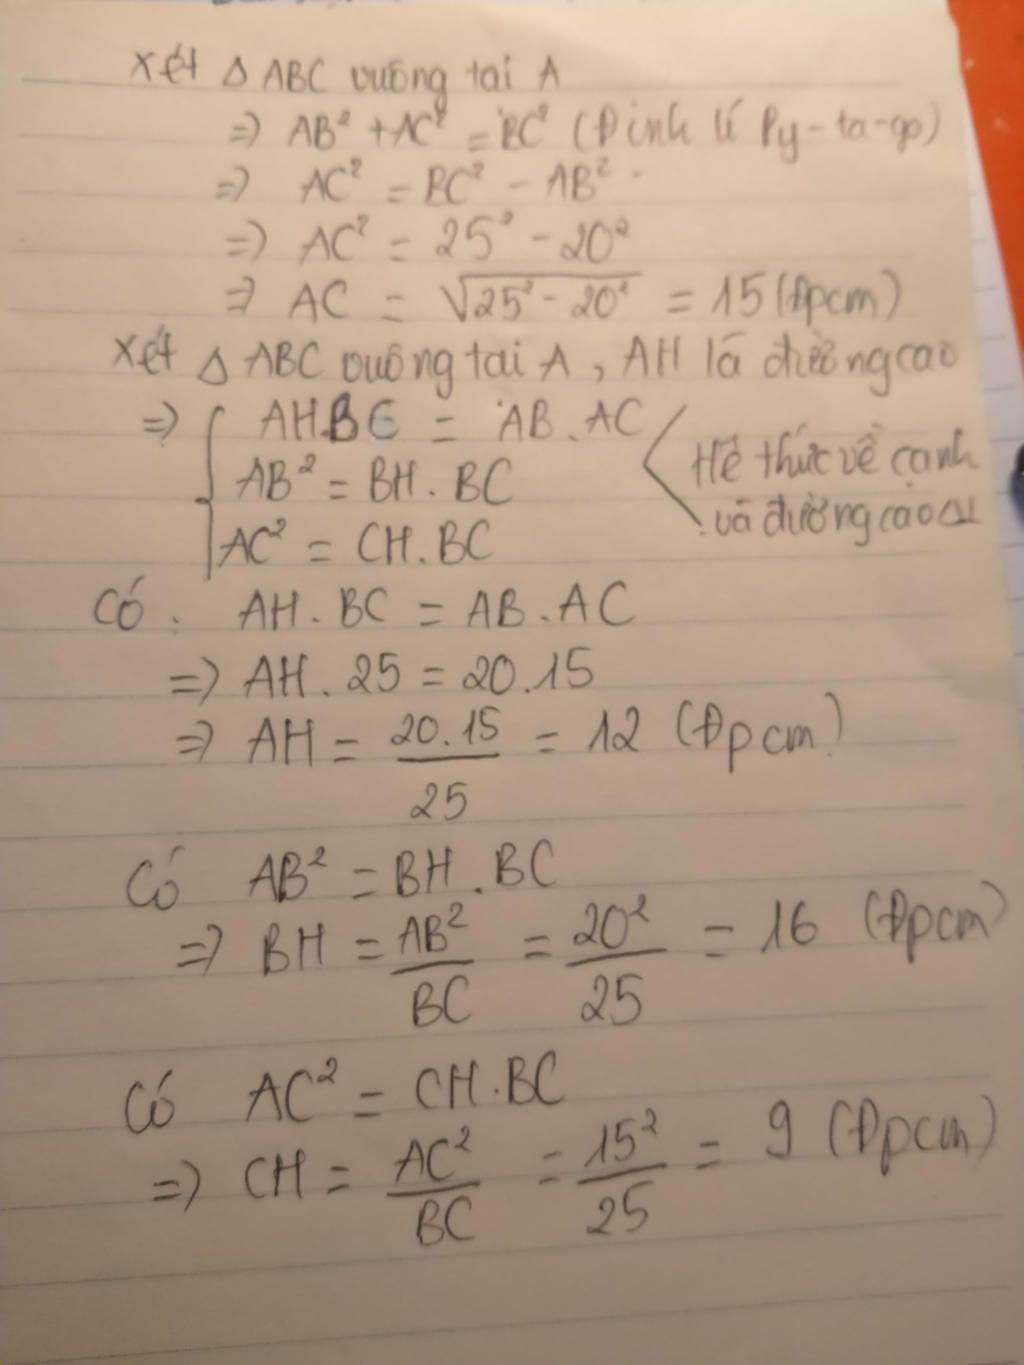 Xét Δ ABC vuông tại A
=> AB² + AC² = BC² (Định lí Py-ta-go)
=> AC² = BC² - AB²
=> AC² = 25² - 20²
=> AC = √25² - 20² = 15 (Đpcm)
Xét Δ ABC vuông tại A, AH là đường cao
=> { AH.BC = AB.AC
AB² = BH.BC
AC² = CH.BC
< Hệ thức về cạnh
và đường cao Δ
Có: AH.BC = AB.AC
=> AH.25 = 20.15
=> AH = 20.15/25 = 12 (Đpcm)
Có AB² = BH.BC
=> BH = AB²/BC = 20²/25 = 16 (Đpcm)
Có AC² = CH.BC
=> CH = AC²/BC = 15²/25 = 9 (Đpcm)